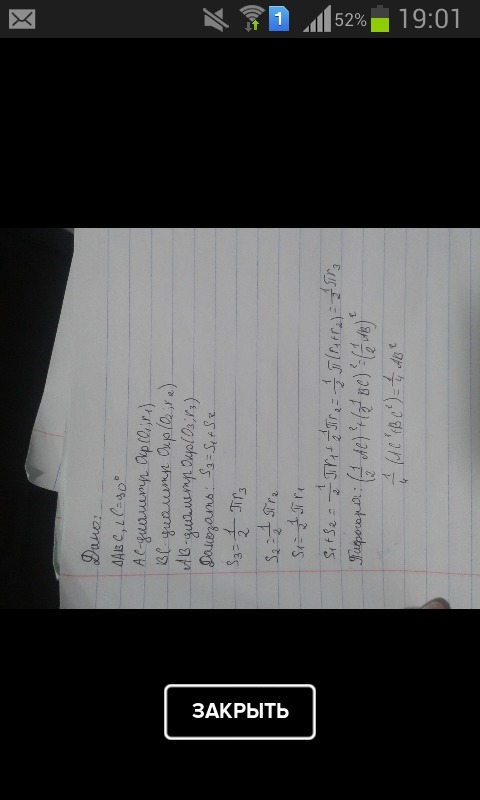 52% 19:01
1
Дано:
ΔABC, ∠C=90°
AC-диаметр Окр(O₁;r₁)
BC-диаметр Окр(O₂;r₂)
AB-диаметр Окр(O₃;r₃)
Доказать: S₃=S₁+S₂
S₃=1/2 πr₃
S₂=1/2 πr₂
S₁=1/2 πr₁
S₁+S₂=1/2 πr₁+1/2 πr₂=1/2 π(r₁+r₂)=1/2 πr₃
Пифагора: (1/2 AC)²+(1/2 BC)²=(1/2 AB)²
1/4 (AC²+BC²)=1/4 AB²
ЗАКРЫТЬ